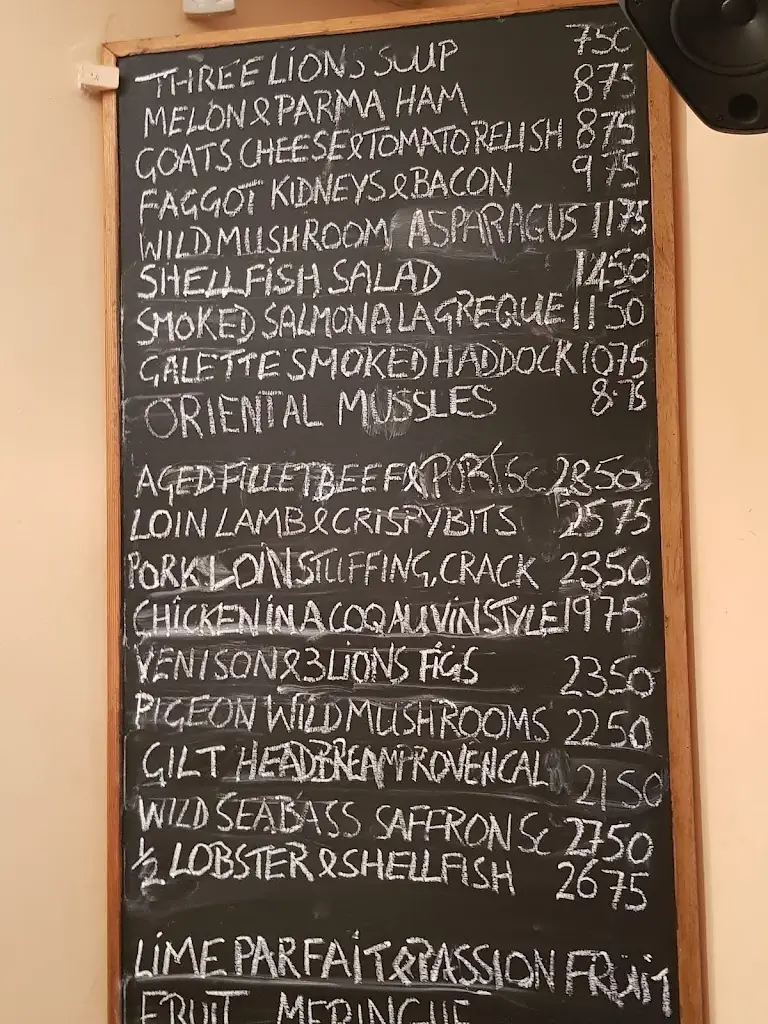 THREE LIONS SOUP 750
MELON & PARMA HAM 875
GOATS CHEESE & TOMATO RELISH 875
FAGGOT KIDNEYS & BACON 975
WILD MUSHROOM ASPARAGUS 1175
SHELLFISH SALAD 1450
SMOKED SALMON A LA GREQUE 1150
GALETTE SMOKED HADDOCK 1075
ORIENTAL MUSSLES 8.75
AGED FILLET BEEF & PORT SC 2850
LOIN LAMB & CRISPY BITS 2575
PORK LOIN STUFFING, CRACK 2350
CHICKEN IN A COQ AU VIN STYLE 1975
VENISON & 3 LIONS FIGS 2350
PIGEON WILD MUSHROOMS 2250
GILT HEAD BREAM PROVENCAL 2150
WILD SEA BASS SAFFRON SC 2750
1/2 LOBSTER & SHELLFISH 2675
LIME PARFAIT & PASSION FRUIT
FRUIT MERINGUE